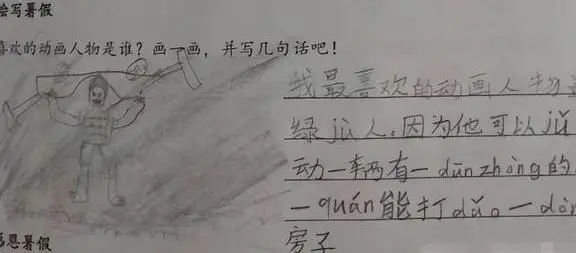 绘写暑假
喜欢的动画人物是谁？画一画，并写几句话吧！
我最喜欢的动画人物是
绿jù人。因为他可以jǔ
动一辆有一dūnzhòng的
一quán能打dǎo一dòn
房子
感恩暑假